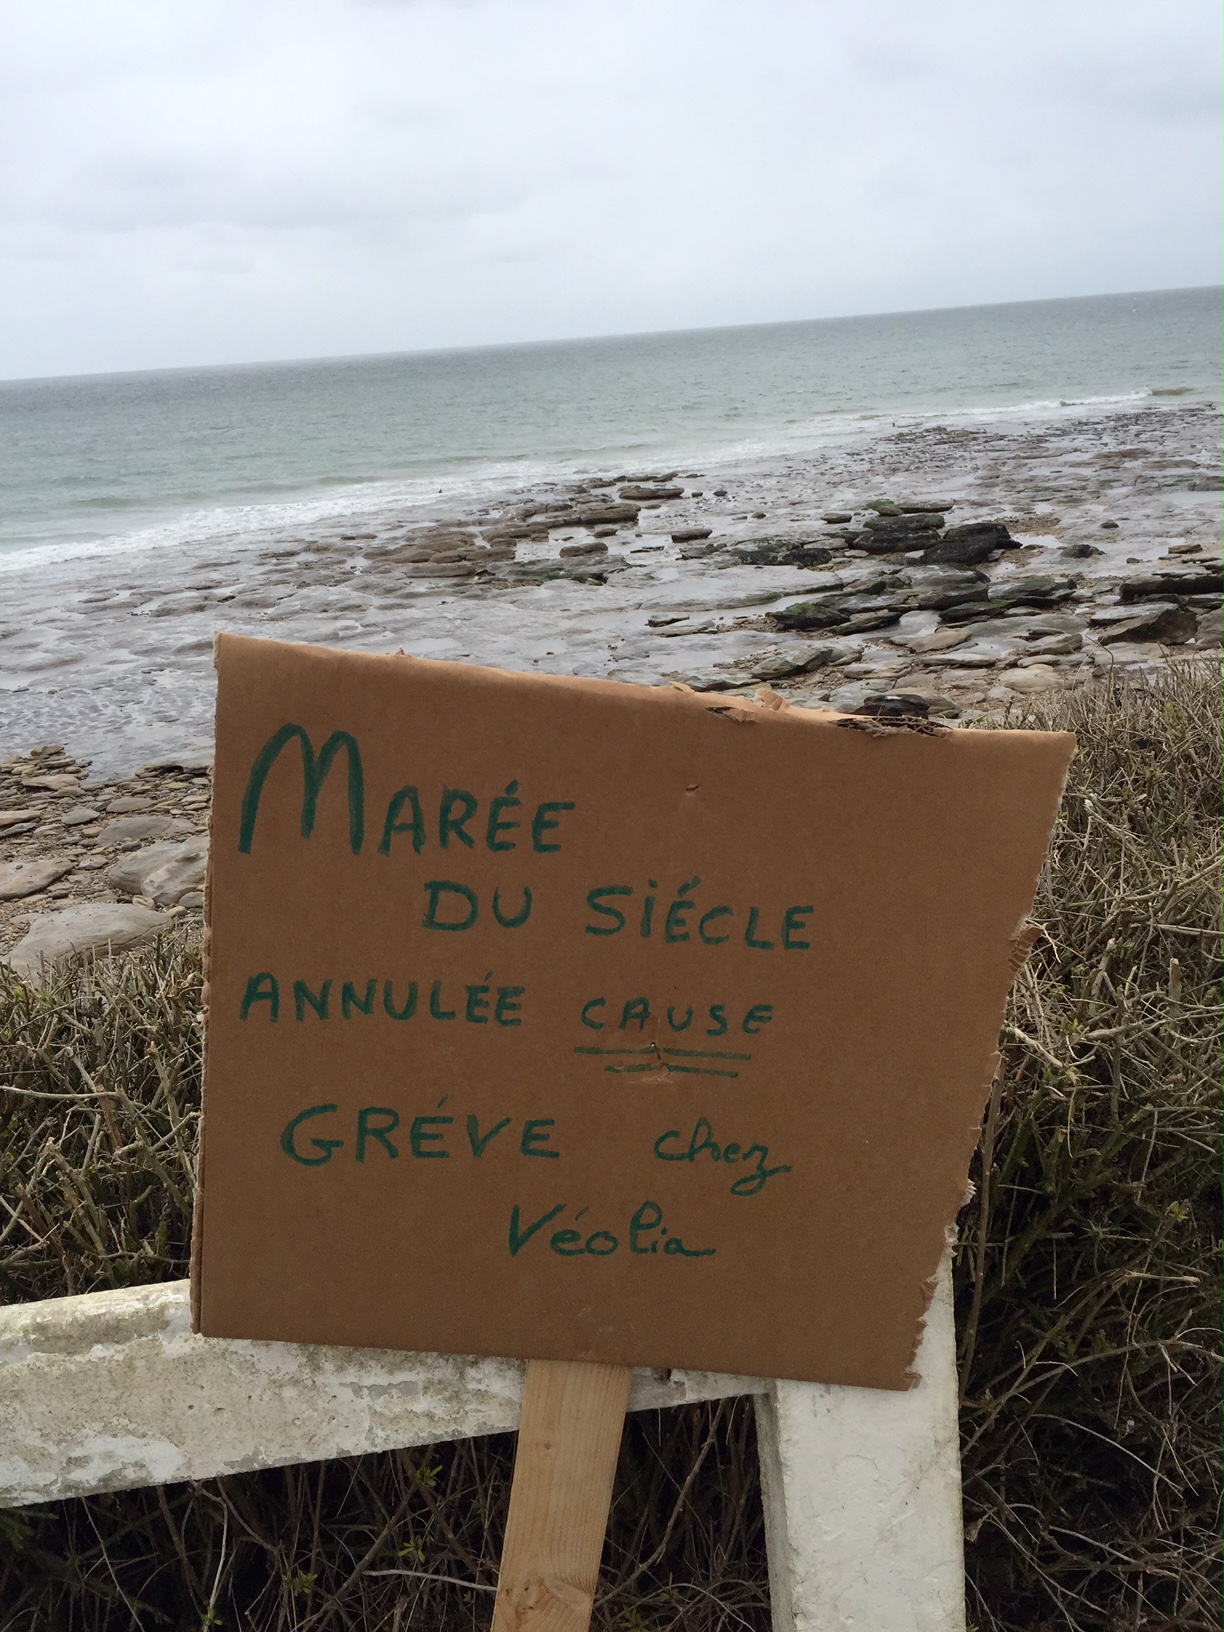 MARÉE
DU SIÉCLE
ANNULÉE CAUSE
GRÉVE chez
Véolia